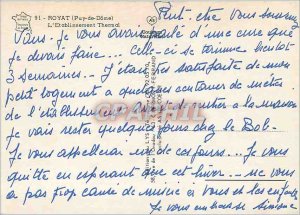 91 - ROYAT (Puy-de-Dôme)
L'Etablissement Thermal
Peut-être vous souvenez
Vous. je vous avais parlé d'une cure que
je devais faire... Celle-ci se termine bientôt
3 semaines. J'étais satisfaite de mon
petit logement à quelques centaines de mètres
de l'établissement à la maison
je vais rester quelques jours chez le Bob.
Je vous appellerai un de ces jours... Je vous
quitte en espérant que cet hiver ne vous
a pas trop causé de misère à vous et les enfants
Je vous embrasse Simone